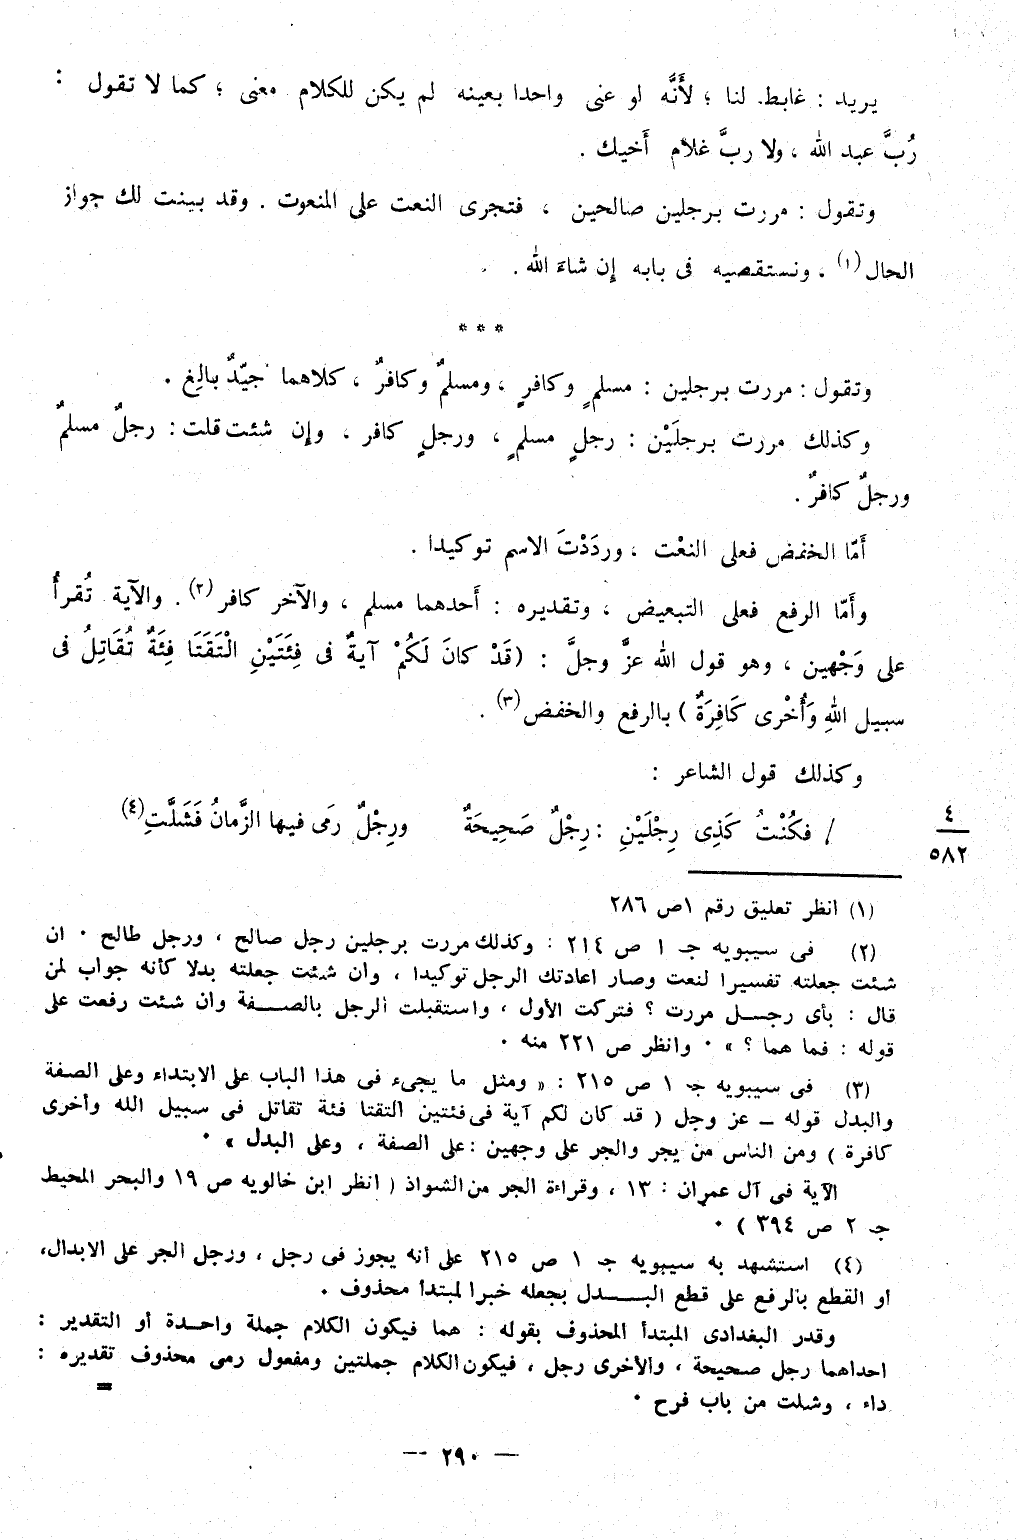 يريد : غابط لنا ؛ لأَنَّه لو عنى واحدا بعينه لم يكن للكلام معنى ؛ كما لا تقول :
رُبَّ عبد الله ، ولا ربَّ غلام أَخيك .
وتقول : مررت برجلين صالحين ، فتجرى النعت على المنعوت . وقد بينت لك جواز
الحال (١) ، ونستقصيه فى بابه إن شاءَ الله .
* * *
وتقول : مررت برجلين : مسلمٍ وكافرٍ ، ومسلمٌ وكافرٌ ، كلاهما جيّدٌ بالِغ .
وكذلك مررت برجلَيْن : رجلٍ مسلمٍ ، ورجلٍ كافر ، وإن شئت قلت : رجلٌ مسلمٌ
ورجلٌ كافرٌ .
أمّا الخفض فعلى النعْت ، وردَدْتَ الاسم توكيدا .
وأَمّا الرفع فعلى التبعيض ، وتقديره : أَحدهما مسلم ، والآخر كافر (٢) . والآية تُقرأُ
على وَجْهين ، وهو قول الله عزَّ وجلَّ : (قَدْ كانَ لَكُمْ آيةٌ فى فِئَتَيْنِ الْتَقَتَا فِئَةٌ تُقَاتِلُ فى
سبيل اللهِ وَأُخْرى كَافِرَةٌ ) بالرفع والخفض (٣) .
وكذلك قول الشاعر :
/ فكُنْتُ كَذِى رِجْلَيْنِ : رِجْلٌ صَحِيحَةٌ ورِجْلٌ رمَى فيها الزَّمانُ فَشَلَّتِ (٤)
٤
٥٨٢
(١) انظر تعليق رقم ١ ص ٢٨٦
(٢) فى سيبويه جـ ١ ص ٢١٤ : وكذلك مررت برجلين رجل صالح ، ورجل طالح · ان
شئت جعلته تفسيرا لنعت وصار اعادتك الرجل توكيدا ، وان شئت جعلته بدلا كأنه جواب لمن
قال : بأى رجــل مررت ؟ فتركت الأول ، واستقبلت الرجل بالصــفة وان شئت رفعت على
قوله : فما هما ؟ » · وانظر ص ٢٢١ منه ·
(٣) فى سيبويه جـ ١ ص ٢١٥ : « ومثل ما يجىء فى هذا الباب على الابتداء وعلى الصفة
والبدل قوله ــ عز وجل ( قد كان لكم آية فى فئتين التقتا فئة تقاتل فى سبيل الله وأخرى
كافرة ) ومن الناس من يجر والجر على وجهين : على الصفة ، وعلى البدل » ·
الآية فى آل عمران : ١٣ ، وقراءة الجر من الشواذ ( انظر ابن خالويه ص ١٩ والبحر المحيط
جـ ٢ ص ٣٩٤ ) ·
(٤) استشهد به سيبويه جـ ١ ص ٢١٥ على أنه يجوز فى رجل ، ورجل الجر على الابدال،
أو القطع بالرفع على قطع البــدل بجعله خبرا لمبتدأ محذوف .
وقدر البغدادى المبتدأ المحذوف بقوله : هما فيكون الكلام جملة واحدة أو التقدير :
احداهما رجل صحيحة ، والأخرى رجل ، فيكون الكلام جملتين ومفعول رمى محذوف تقديره :
داء ، وشلت من باب فرح ·
=
— ٢٩٠ —